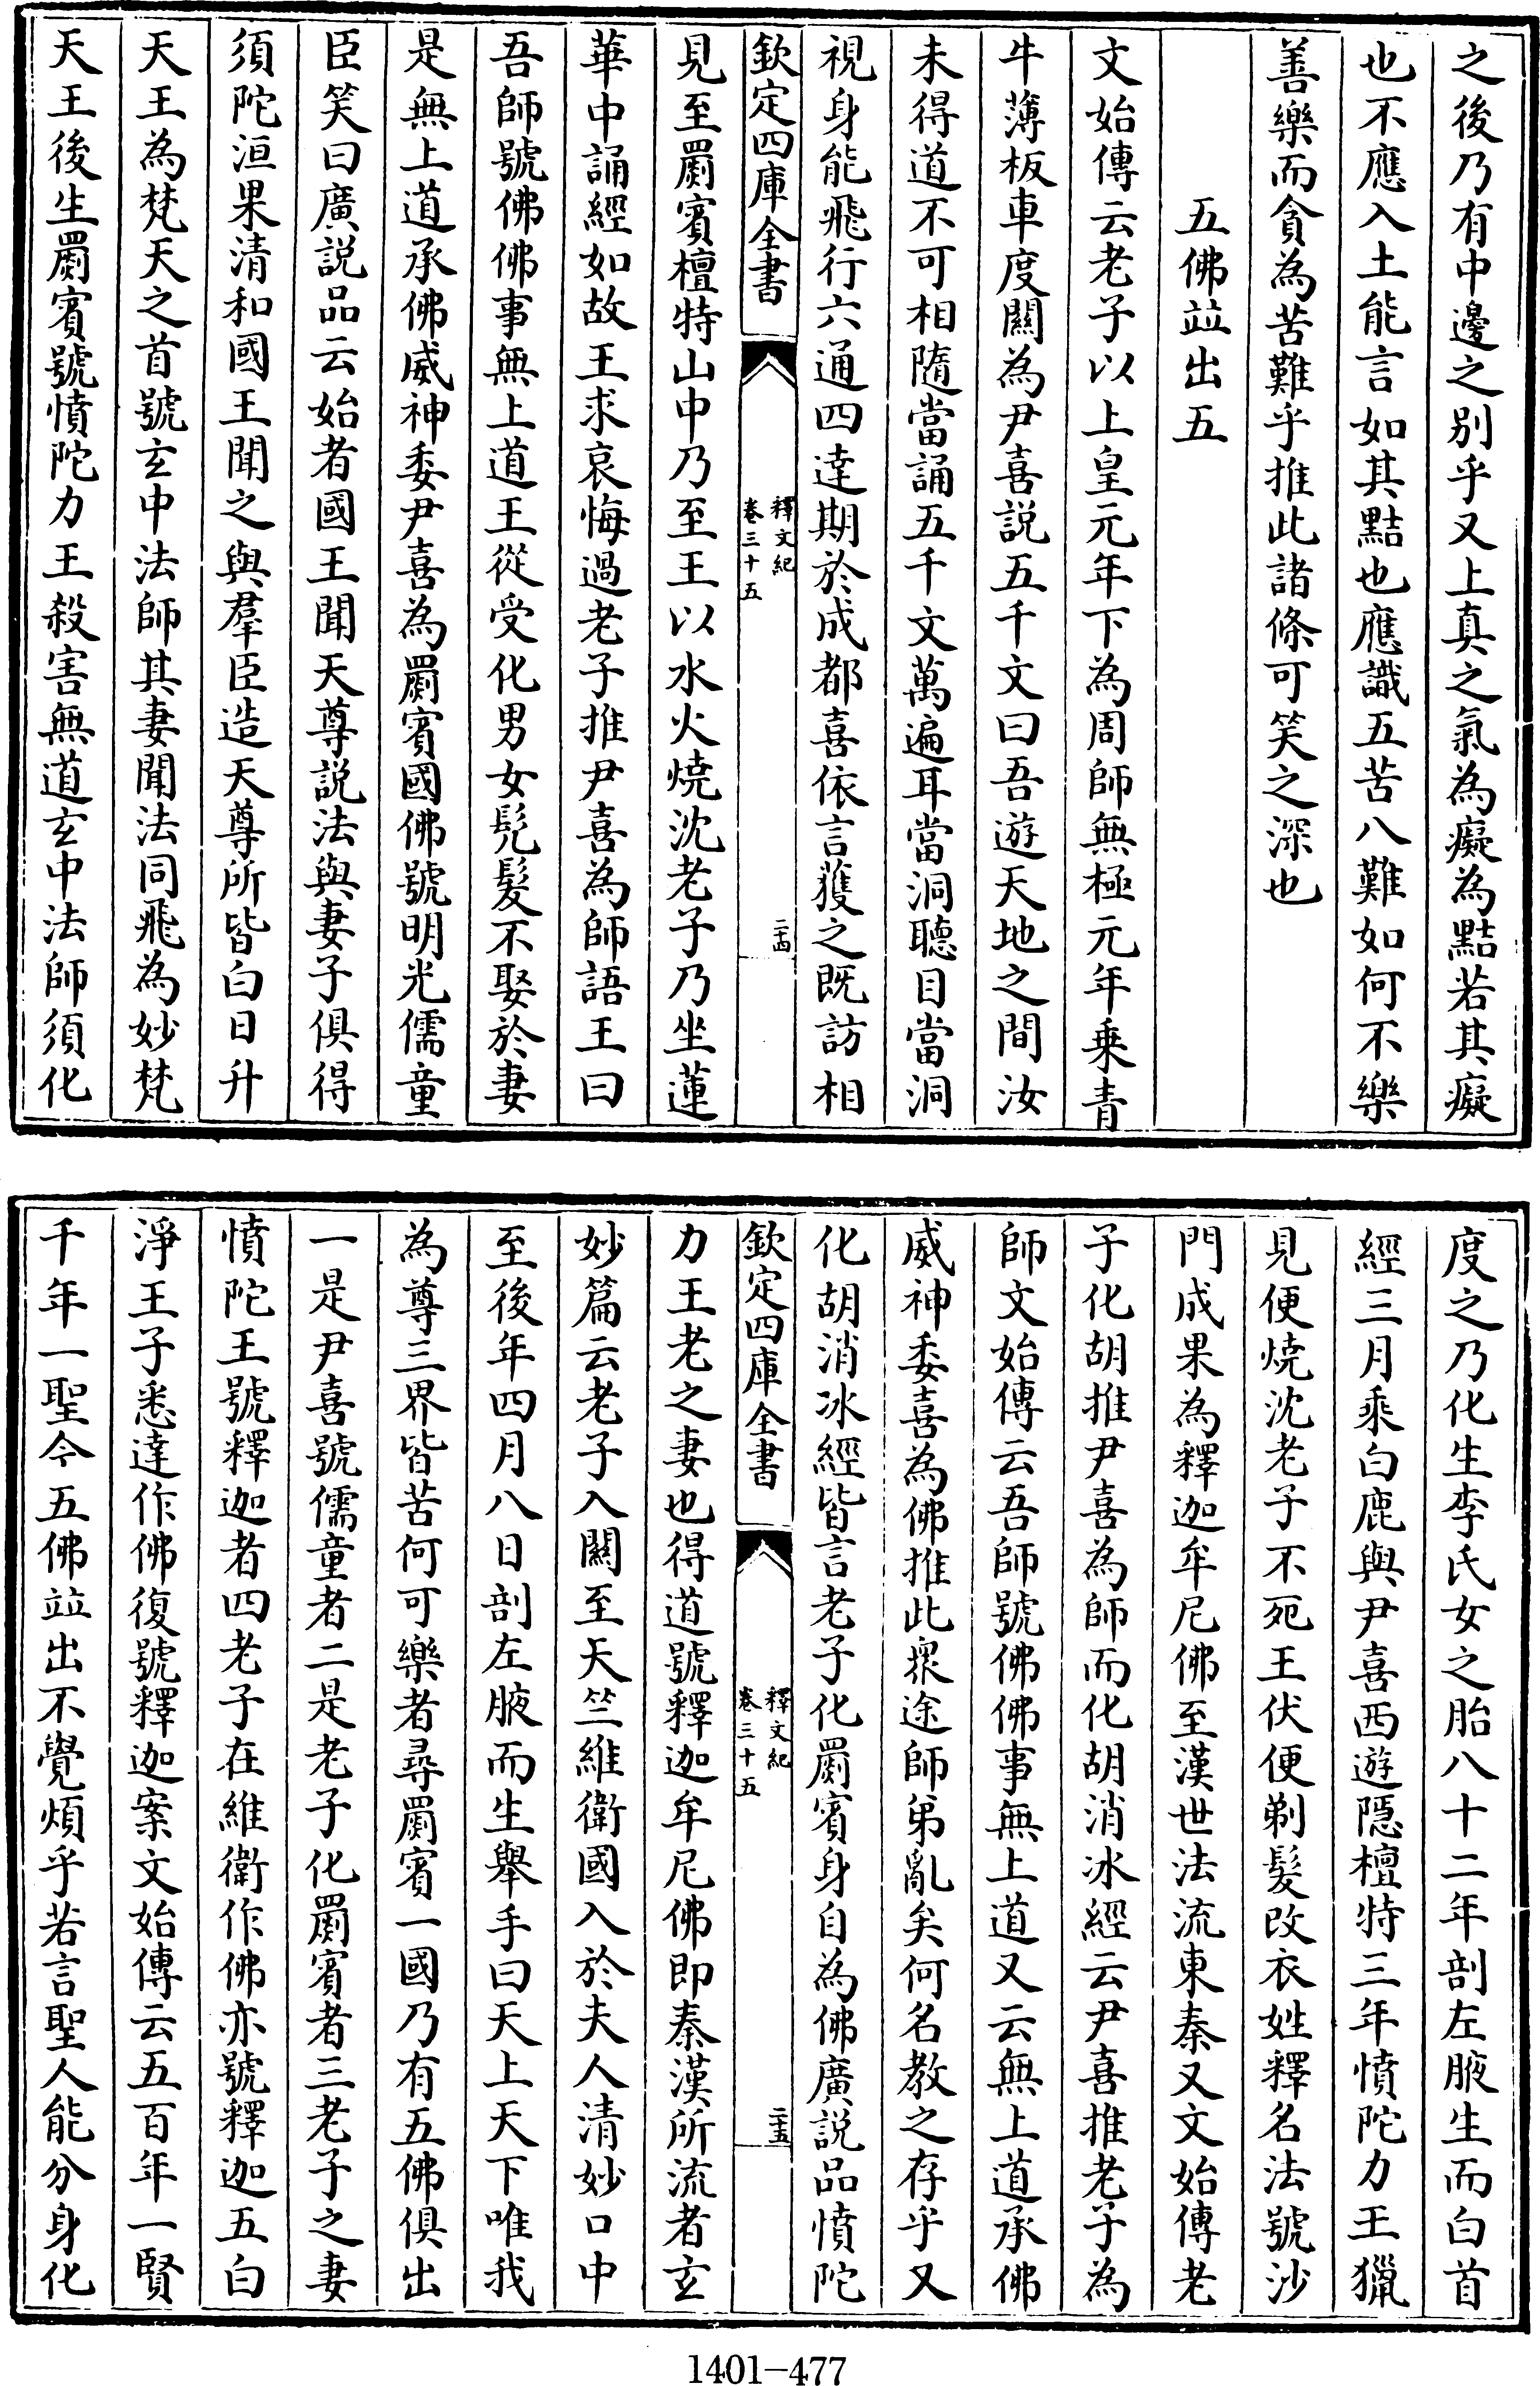 之後乃有中邊之别乎又上真之氣為癡為黠若其癡
也不應入土能言如其黠也應識五苦八難如何不樂
善樂而貪為苦難乎推此諸條可笑之深也
五佛竝出五
文始傳云老子以上皇元年下為周師無極元年乗青
牛薄板車度關為尹喜説五千文曰吾遊天地之間汝
未得道不可相隨當誦五千文萬遍耳當洞聽目當洞
視身能飛行六通四達期於成都喜依言獲之既訪相
欽定四庫全書
釋文紀
卷三十五
二十四
見至罽賓檀特山中乃至王以水火燒沈老子乃坐蓮
華中誦經如故王求哀悔過老子推尹喜為師語王曰
吾師號佛佛事無上道王從受化男女髠髮不娶於妻
是無上道承佛威神委尹喜為罽賓國佛號明光儒童
臣笑曰廣説品云始者國王聞天尊説法與妻子俱得
須陀洹果清和國王聞之與羣臣造天尊所皆白日升
天王為梵天之首號玄中法師其妻聞法同飛為妙梵
天王後生罽賓號憤陀力王殺害無道玄中法師須化
度之乃化生李氏女之胎八十二年剖左腋生而白首
經三月乘白鹿與尹喜西遊隱檀特三年憤陀力王獵
見便燒沈老子不死王伏便剃髮改衣姓釋名法號沙
門成果為釋迦牟尼佛至漢世法流東秦又文始傳老
子化胡推尹喜為師而化胡消冰經云尹喜推老子為
師文始傳云吾師號佛佛事無上道又云無上道承佛
威神委喜為佛推此衆途師弟亂矣何名教之存乎又
化胡消冰經皆言老子化罽賓身自為佛廣説品憤陀
欽定四庫全書
釋文紀
卷三十五
二十五
力王老之妻也得道號釋迦牟尼佛即秦漢所流者玄
妙篇云老子入關至天竺維衛國入於夫人清妙口中
至後年四月八日剖左腋而生舉手曰天上天下唯我
為尊三界皆苦何可樂者尋罽賓一國乃有五佛俱出
一是尹喜號儒童者二是老子化罽賓者三老子之妻
憤陀王號釋迦者四老子在維衛作佛亦號釋迦五白
淨王子悉達作佛復號釋迦案文始傳云五百年一賢
千年一聖今五佛竝出不覺煩乎若言聖人能分身化
1401-477